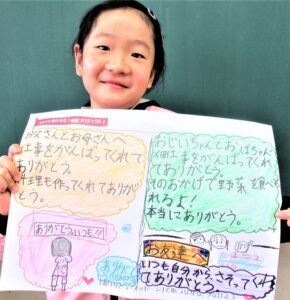 お父さんとお母さんへ
仕事をがんばってくれて
ありがとう。
料理も作ってくれてありがと
う。
ありがとういつも
おじいちゃんとおばあちゃんへ
畑仕事をがんばってくれ
てありがとう。
そのおかげで野菜を食べら
れるよ!
本当にありがとう。
お友達へ
いつも自分からさそってくれて
ありがとう